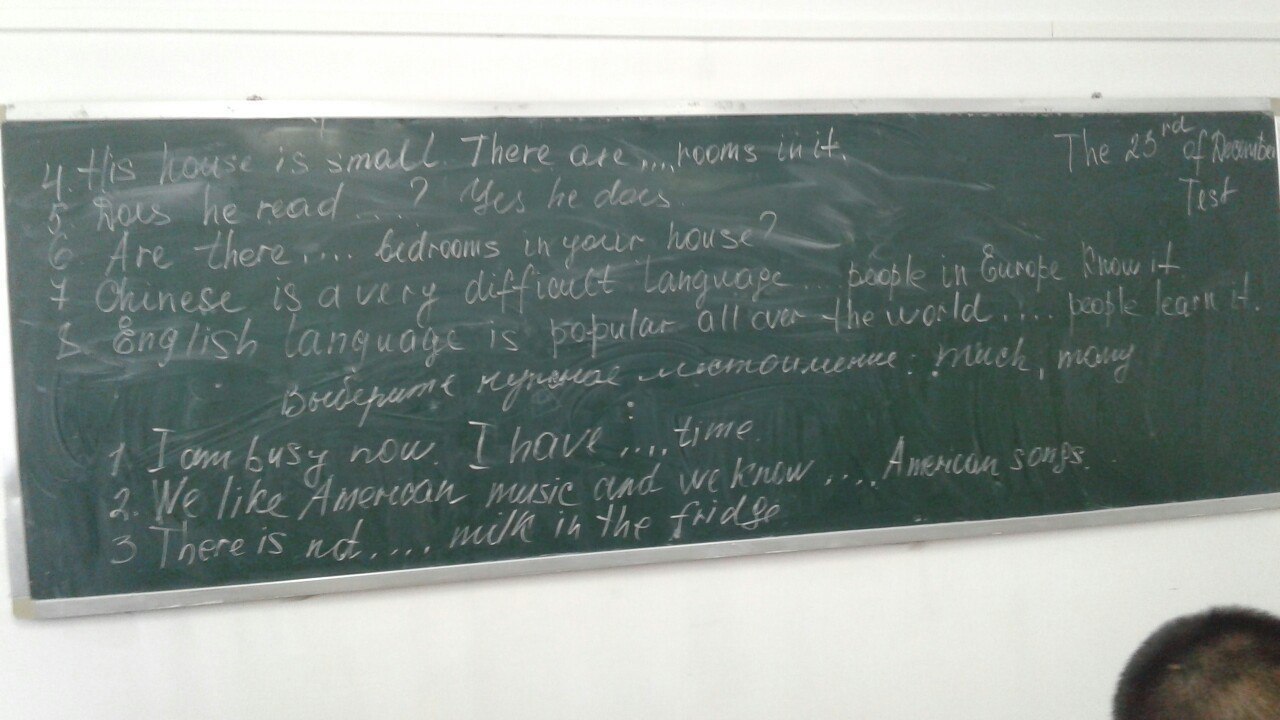 The 23rd of December
Test
4. His house is small. There are .... rooms in it.
5. Does he read ....? Yes he does.
6 Are there .... bedrooms in your house?
7 Chinese is a very difficult language ... people in Europe know it
8 English language is popular all over the world .... people learn it.
Выберите нужное местоимение: much, many
1. I am busy now. I have .... time.
2. We like American music and we know .... American songs.
3 There is not .... milk in the fridge